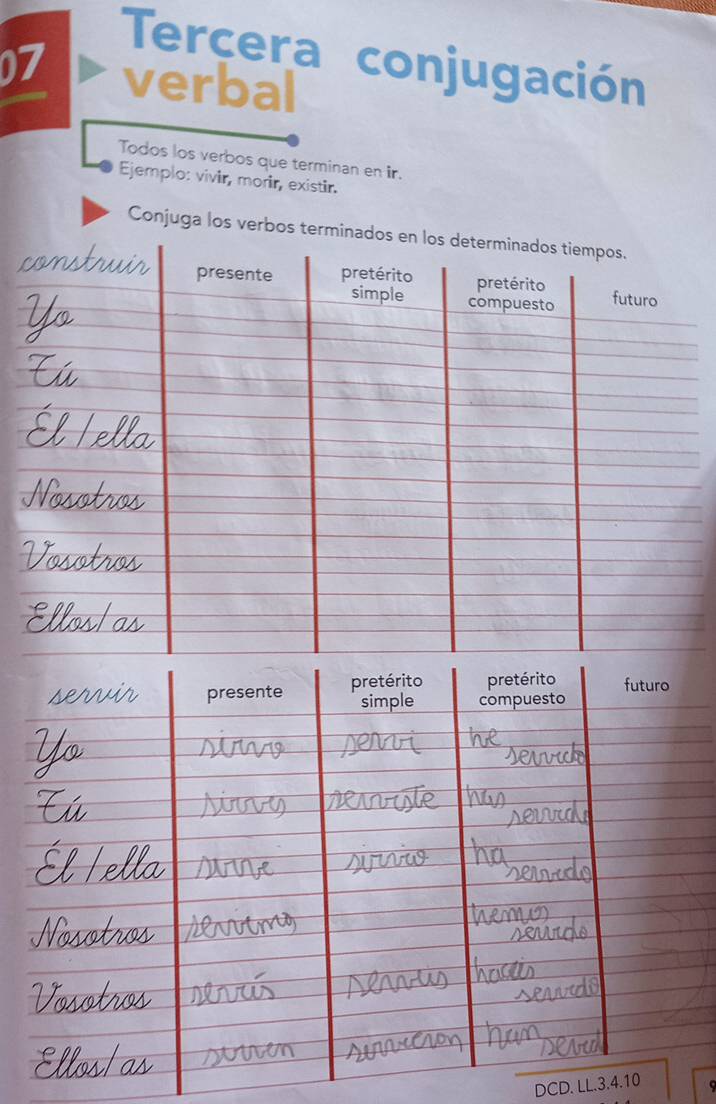 07
Tercera conjugación
verbal
Todos los verbos que terminan en ir.
Ejemplo: vivir, morir, existir.
Conjuga los verbos terminados en los determinados tiempos.
construir presente pretérito simple pretérito compuesto futuro
Yo
Tú
Él/ella
Nosotros
Vosotros
Ellos/as
servir presente pretérito simple pretérito compuesto futuro
Yo sirvo serví he servido
Tú sirves serviste has servido
Él/ella sirve sirvio ha servido
Nosotros hemos servido
Vosotros servís habeis servido
Ellos/as sirven sirvieron han
DCD. LL.3.4.10
9